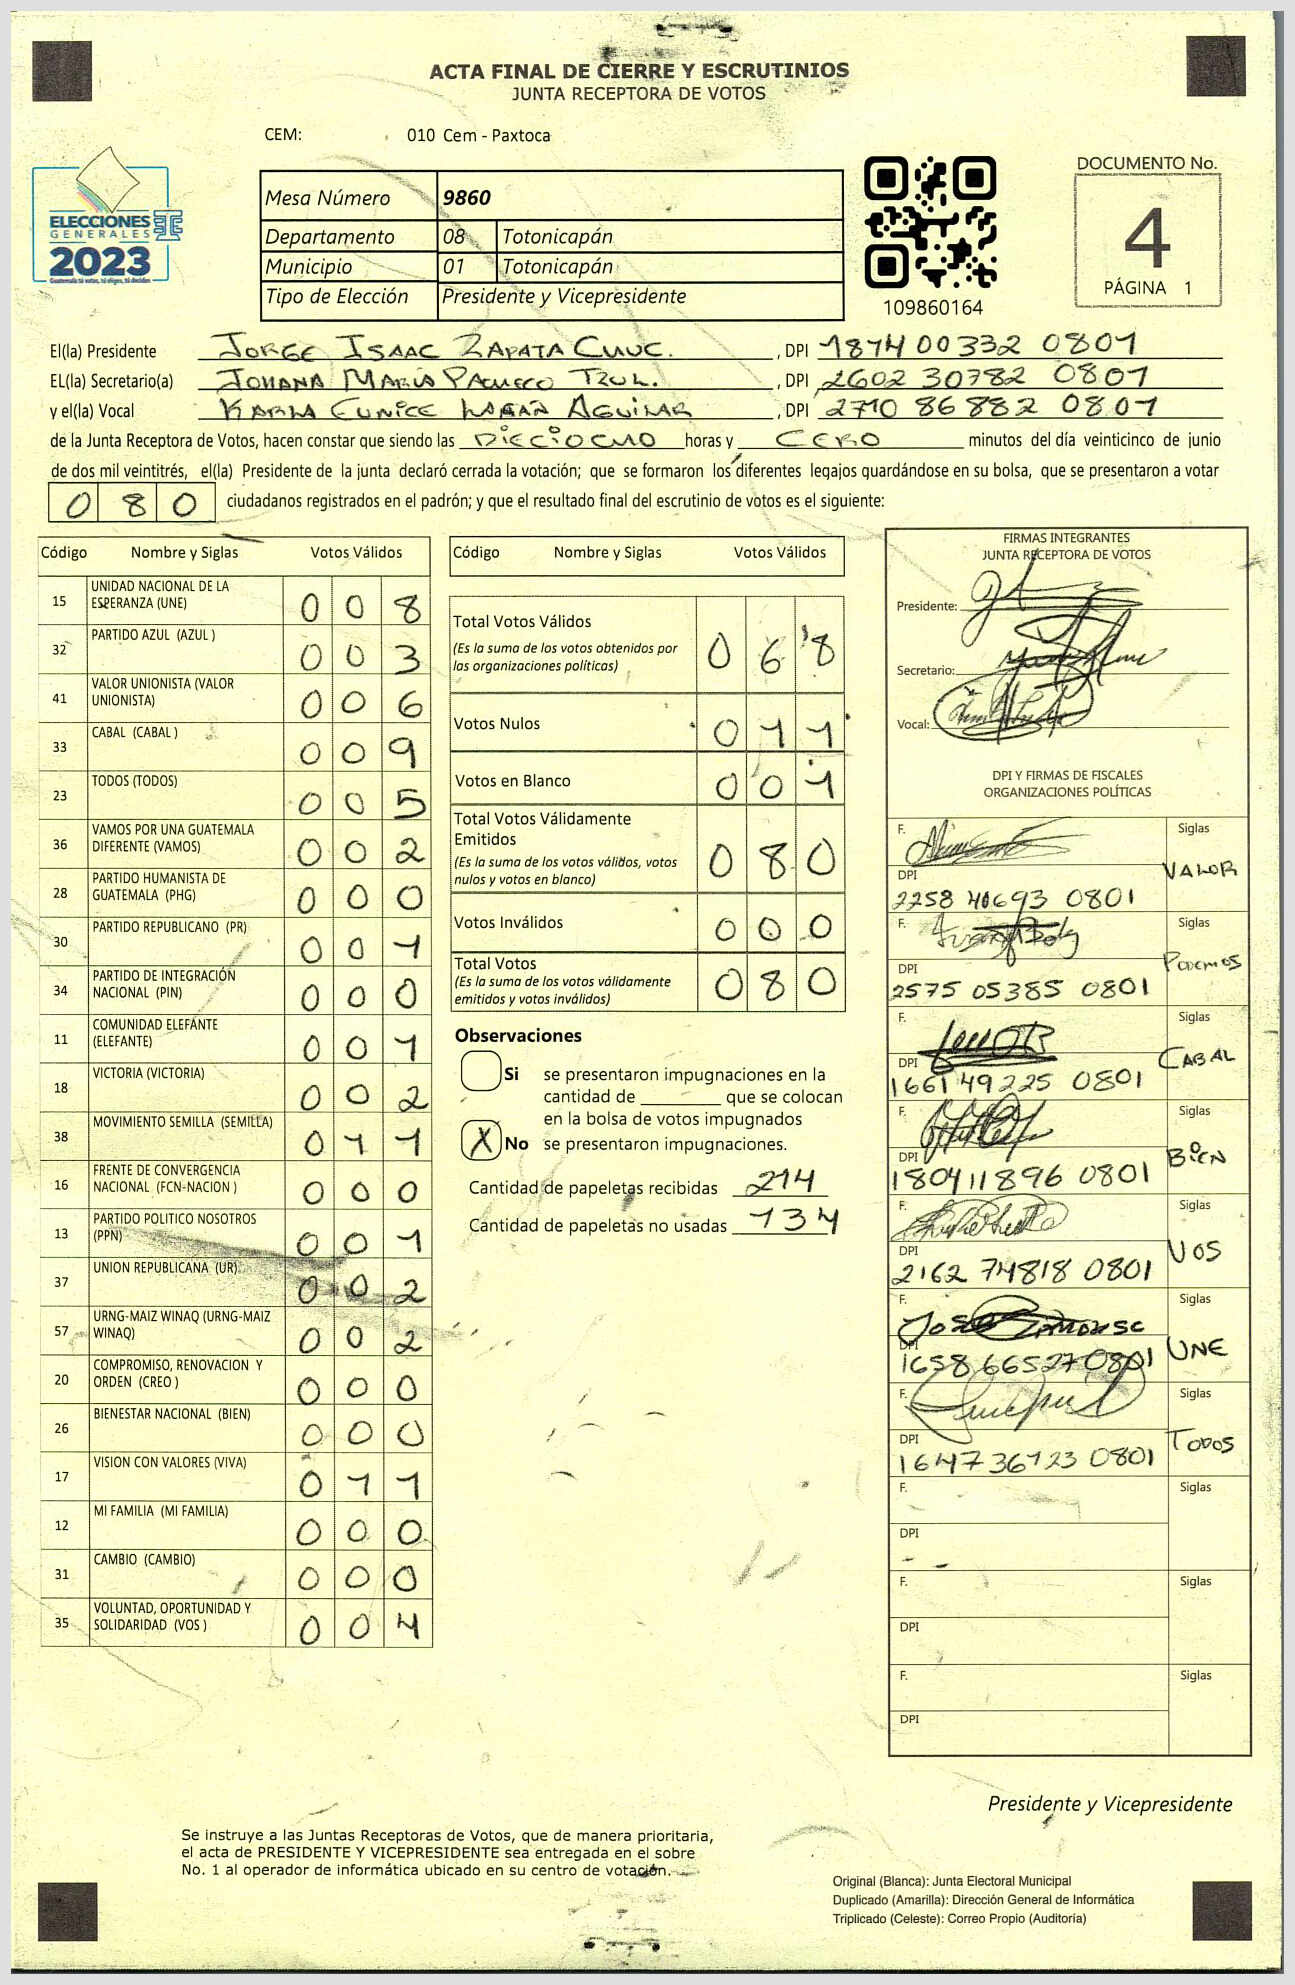 ACTA FINAL DE CIERRE Y ESCRUTINIOS
JUNTA RECEPTORA DE VOTOS
CEM: 010 Cem - Paxtoca
ELECCIONES
GENERALES
2023
Mesa Número 9860
Departamento 08 Totonicapán
Municipio 01 Totonicapán
Tipo de Elección Presidente y Vicepresidente
109860164
DOCUMENTO No.
4
PÁGINA 1
El(la) Presidente JORGE ISAAC ZAPATA CUUC. , DPI 1874 00332 0801
EL(la) Secretario(a) JOHANA MARÍA PACHECO TZUL. , DPI 2602 30782 0801
y el(la) Vocal KARLA EUNICE AGUILAR , DPI 2710 86882 0801
de la Junta Receptora de Votos, hacen constar que siendo las DIECIOCHO horas y CERO minutos del día veinticinco de junio
de dos mil veintitrés, el(la) Presidente de la junta declaró cerrada la votación; que se formaron los diferentes legajos quardándose en su bolsa, que se presentaron a votar
080 ciudadanos registrados en el padrón; y que el resultado final del escrutinio de votos es el siguiente:
Código Nombre y Siglas Votos Válidos
15 UNIDAD NACIONAL DE LA ESPERANZA (UNE) 008
32 PARTIDO AZUL (AZUL ) 003
41 VALOR UNIONISTA (VALOR UNIONISTA) 006
33 CABAL (CABAL ) 009
23 TODOS (TODOS) 005
36 VAMOS POR UNA GUATEMALA DIFERENTE (VAMOS) 002
28 PARTIDO HUMANISTA DE GUATEMALA (PHG) 000
30 PARTIDO REPUBLICANO (PR) 001
34 PARTIDO DE INTEGRACIÓN NACIONAL (PIN) 000
11 COMUNIDAD ELEFANTE (ELEFANTE) 001
18 VICTORIA (VICTORIA) 002
38 MOVIMIENTO SEMILLA (SEMILLA) 011
16 FRENTE DE CONVERGENCIA NACIONAL (FCN-NACION ) 000
13 PARTIDO POLITICO NOSOTROS (PPN) 001
37 UNION REPUBLICANA (UR) 002
57 URNG-MAIZ WINAQ (URNG-MAIZ WINAQ) 002
20 COMPROMISO, RENOVACION Y ORDEN (CREO ) 000
26 BIENESTAR NACIONAL (BIEN) 000
17 VISION CON VALORES (VIVA) 011
12 MI FAMILIA (MI FAMILIA) 000
31 CAMBIO (CAMBIO) 000
35 VOLUNTAD, OPORTUNIDAD Y SOLIDARIDAD (VOS ) 004
Código Nombre y Siglas Votos Válidos
Total Votos Válidos 068
(Es la suma de los votos obtenidos por
las organizaciones políticas)
Votos Nulos 011
Votos en Blanco 001
Total Votos Válidamente
Emitidos 080
(Es la suma de los votos válidos, votos
nulos y votos en blanco)
Votos Inválidos 000
Total Votos 080
(Es la suma de los votos válidamente
emitidos y votos inválidos)
Observaciones
Si se presentaron impugnaciones en la
cantidad de ________ que se colocan
en la bolsa de votos impugnados
X No se presentaron impugnaciones.
Cantidad de papeletas recibidas 214
Cantidad de papeletas no usadas 134
FIRMAS INTEGRANTES
JUNTA RECEPTORA DE VOTOS
Presidente:
Secretario:
Vocal:
DPI Y FIRMAS DE FISCALES
ORGANIZACIONES POLÍTICAS
F. Siglas VALOR
DPI 2258 40693 0801
F. Siglas PODEMOS
DPI 2575 05385 0801
F. Siglas CABAL
DPI 1661 49225 0801
F. Siglas BIEN
DPI 1804 11896 0801
F. Siglas VOS
DPI 2162 74818 0801
F. Siglas UNE
DPI 1658 66527 0801
F. Siglas TODOS
DPI 1647 36123 0801
F. Siglas
DPI
F. Siglas
DPI
F. Siglas
DPI
Presidente y Vicepresidente
Se instruye a las Juntas Receptoras de Votos, que de manera prioritaria,
el acta de PRESIDENTE Y VICEPRESIDENTE sea entregada en el sobre
No. 1 al operador de informática ubicado en su centro de votación.
Original (Blanca): Junta Electoral Municipal
Duplicado (Amarilla): Dirección General de Informática
Triplicado (Celeste): Correo Propio (Auditoría)